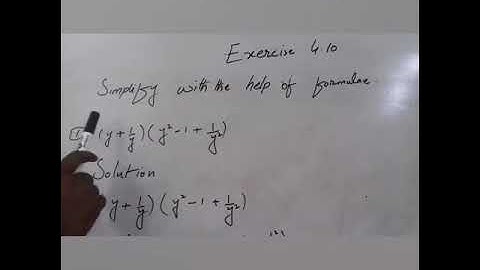 Exercise 4.10
Simplify with the help of formulae.
(y + 1/y)(y² - 1 + 1/y²)
Solution
y + 1/y)(y² - 1 + 1/y²)